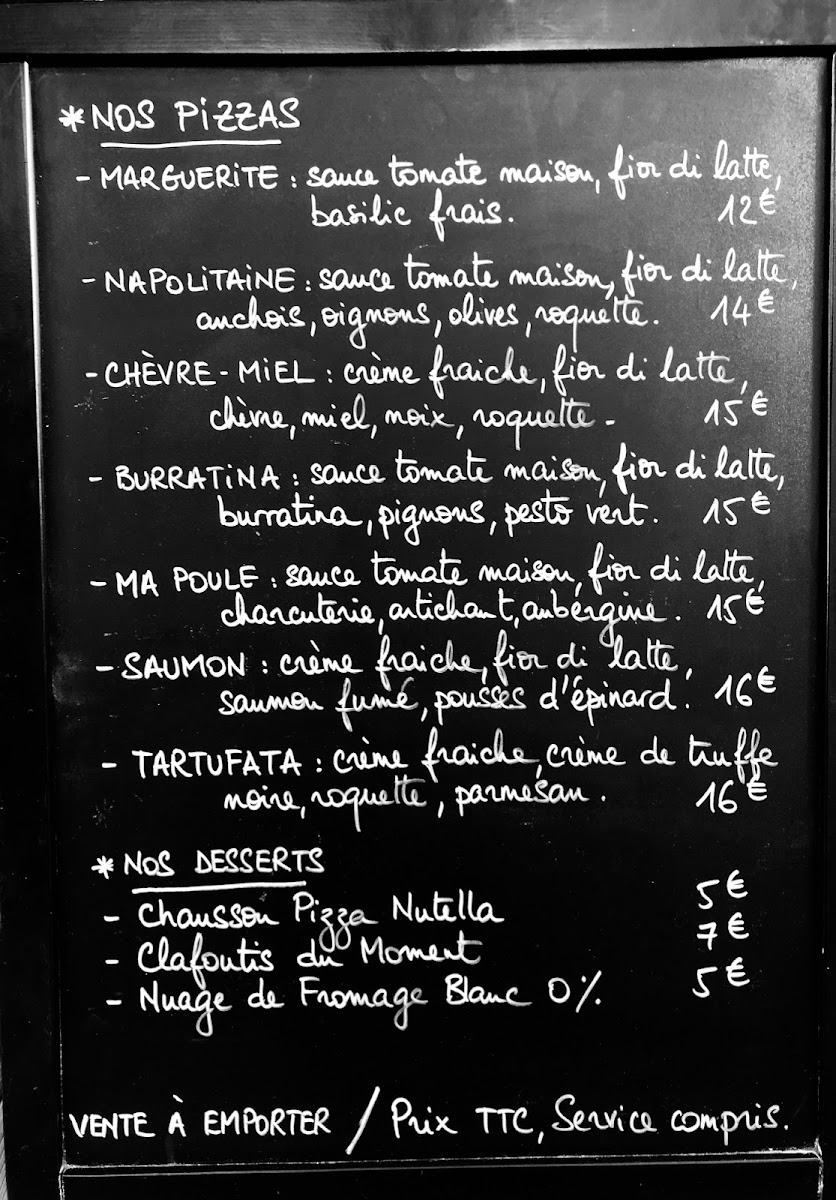 * NOS PIZZAS
- MARGUERITE : sauce tomate maison, fior di latte,
basilic frais. 12€
- NAPOLITAINE : sauce tomate maison, fior di latte,
anchois, oignons, olives, roquette. 14€
- CHÈVRE - MIEL : crème fraiche, fior di latte,
chèvre, miel, noix, roquette - 15€
- BURRATINA : sauce tomate maison, fior di latte,
burratina, pignons, pesto vert. 15€
- MA POULE : sauce tomate maison, fior di latte,
charcuterie, artichaut, aubergine. 15€
- SAUMON : crème fraiche, fior di latte,
saumon fumé, pousses d'épinard. 16€
- TARTUFATA : crème fraiche, crème de truffe
noire, roquette, parmesan. 16€
* NOS DESSERTS
- Chausson Pizza Nutella 5€
- Clafoutis du Moment 7€
- Nuage de Fromage Blanc 0% 5€
VENTE À EMPORTER / Prix TTC, Service compris.